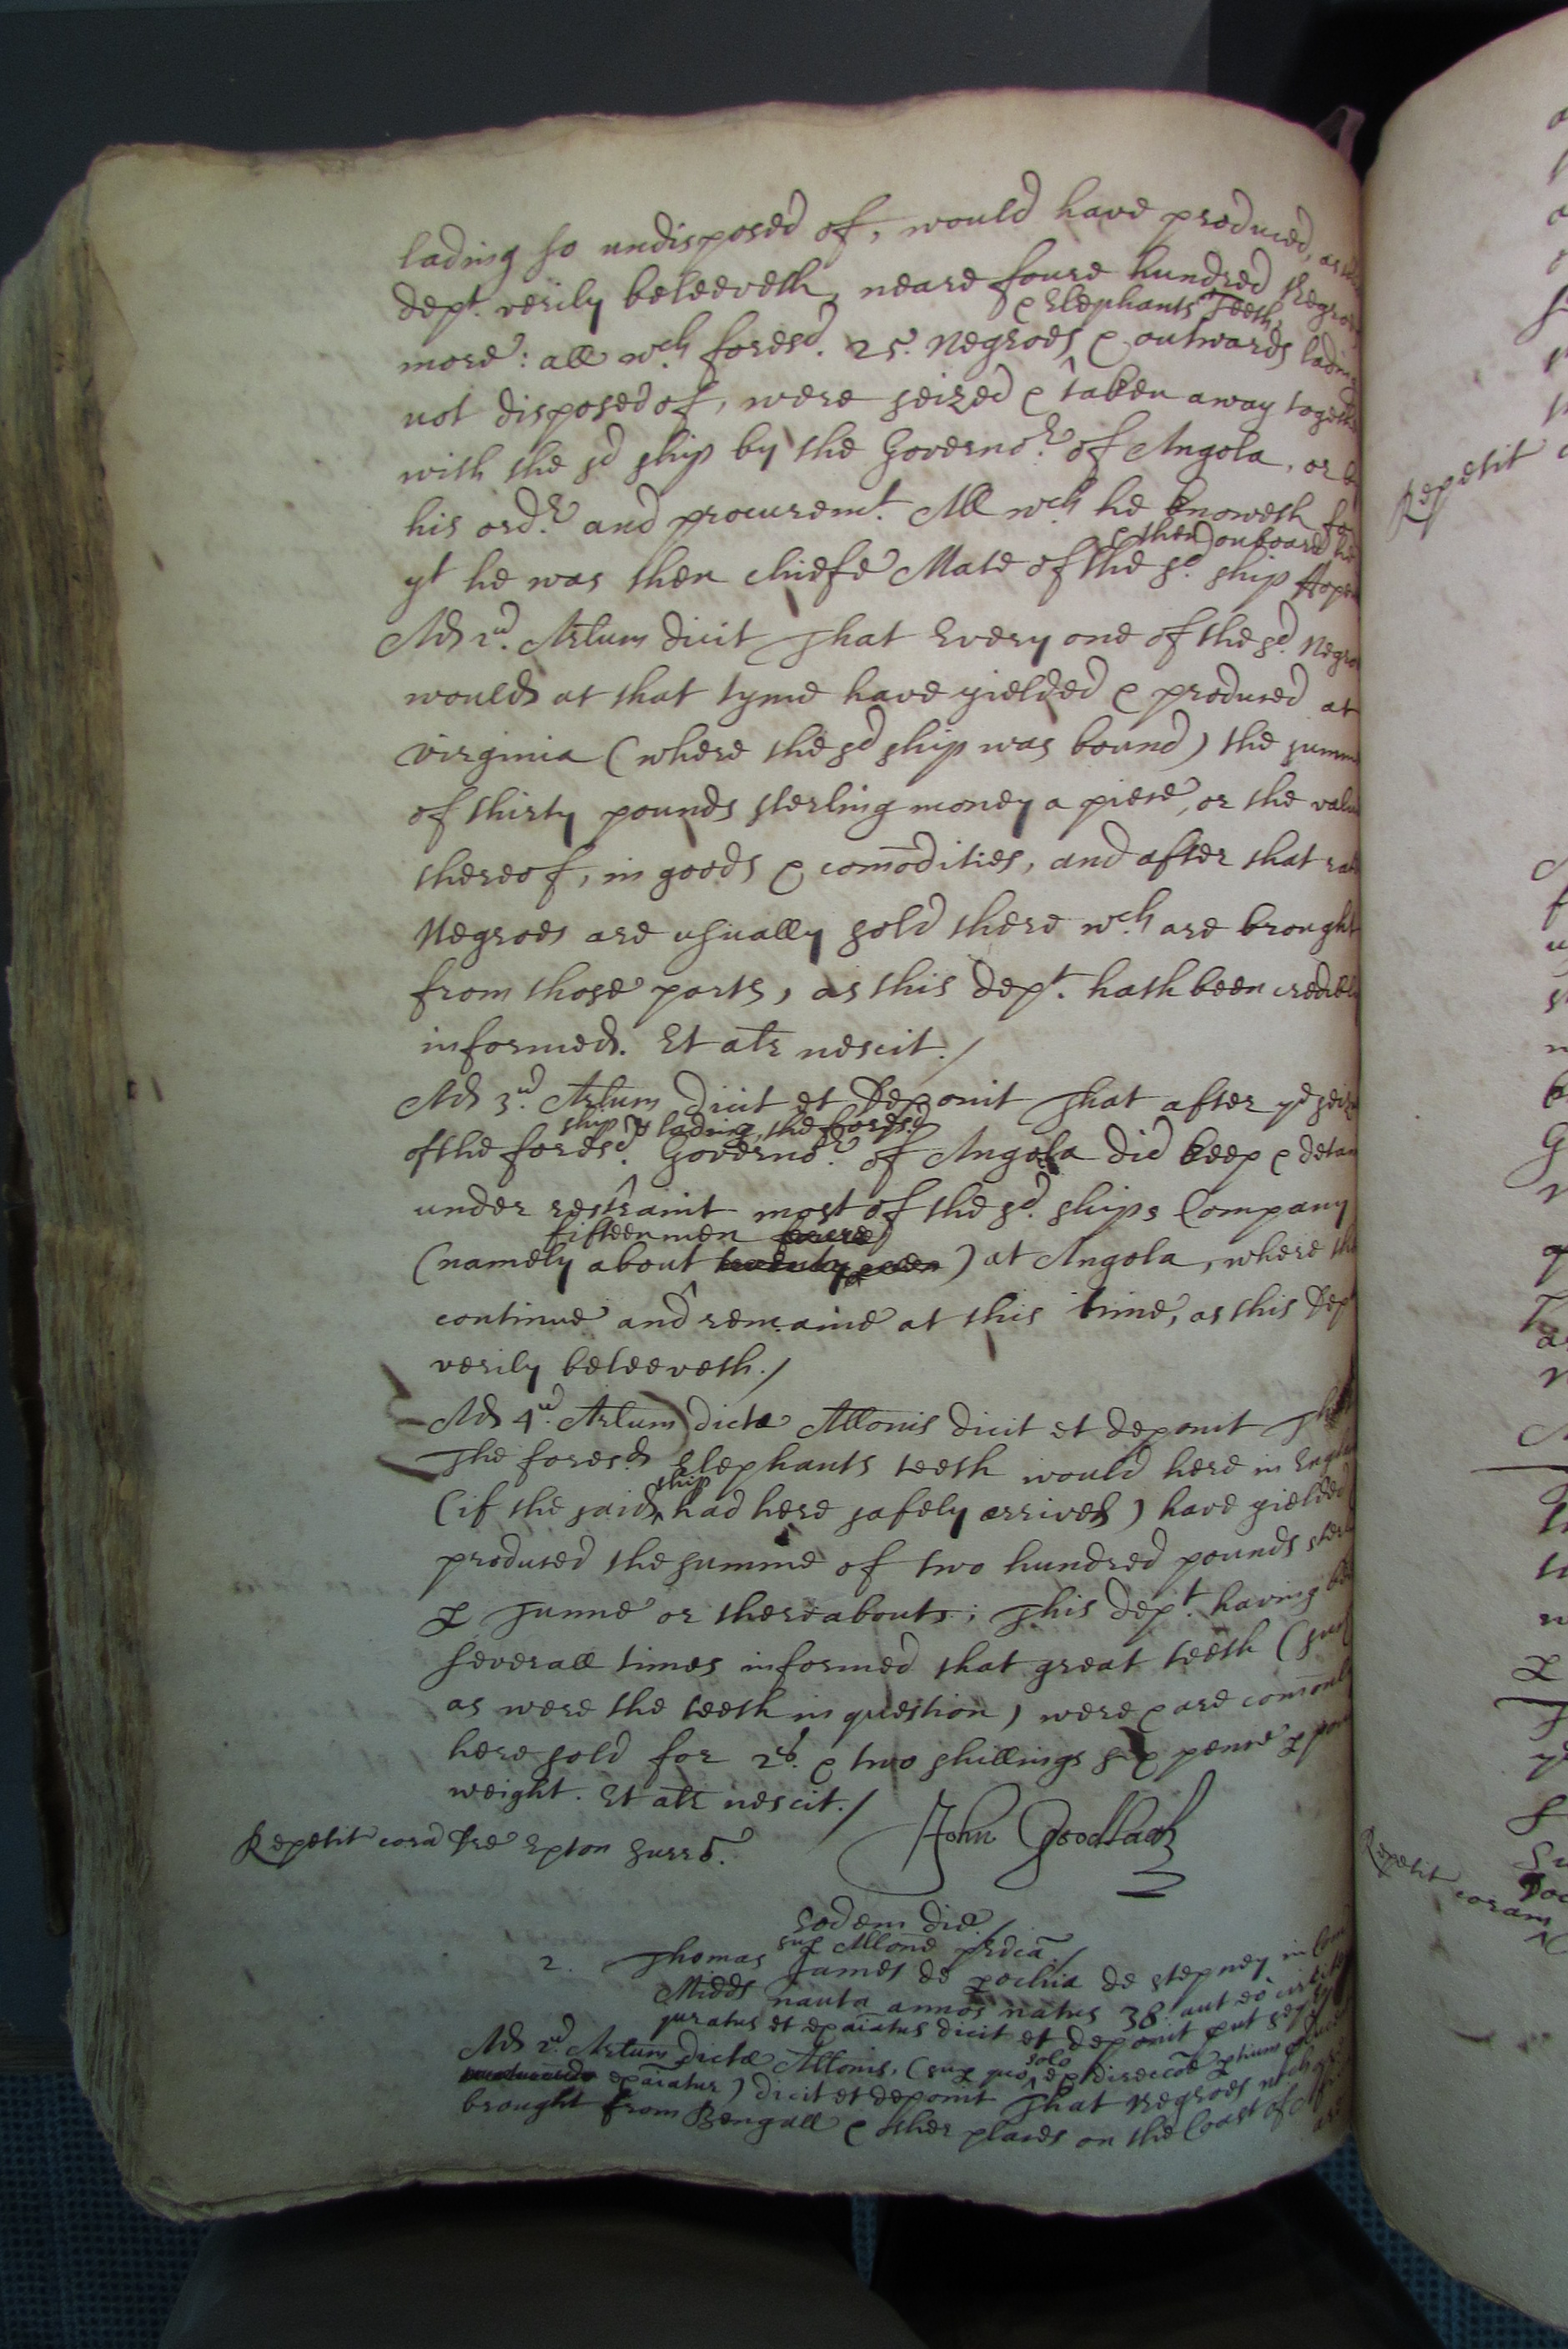 lading so undisposed of, would have produced, as
dept. verily beleeveth, neare foure hundred Negroes
& Elephants Teeth,
more: all wch. foresd. 25. Negroes & outwards lading
not disposed of, were seized & taken away together
with the sd ship by the Governor. of Angola, or by
his ordr. and procuremt. All wch he knoweth for
& then onboard her
yt he was then chiefe Mate of the sd. ship
Ad 2um. Arlum dicit That Every one of the sd. Negroes
would at that tyme have yielded & produced at
Virginia (where the sd ship was bound) the summe
of thirty pounds sterling money a piece, or the value
thereof, in goods & comodities, and after that rate
Negroes are usually sold there wch. are brought
from those parts, as this dept. hath been credibly
informed. Et altr nescit./
Ad 3um. Arlum dicit et deponit That after ye seizure
ship & lading, the foresd
of the foresd. Governor. of Angola did keep & detaine
under restraint most of the sd. ships Company
fifteen men foure
(namely about twenty ) at Angola, where they
continue and remaine at this time, as this Dept
verily beleeveth./
Ad 4um. Arlum dictæ Allonis dicit et deponit That
The foresd. Elephants teeth would here in England
ship
(if the said had here safely arrived) have yielded
produced the summe of two hundred pounds sterl
p Tunne or thereabouts; This dept. having been
severall times informed that great teeth (such
as were the teeth in question) were & are comonly
here sold for 2s. & two shillings six pence p pound
weight. Et altr nescit./
John Goodladd
Repetit cora Dre Exton Surr.
Eodem die./
sup Allone prdca./
2. Thomas James de pochia de Stepney in Com
Midds nauta annos natus 38 aut eo circiter
juratus et exaiatus dicit et deponit put sequitur
Ad 2um. Arlum dictæ Allonis, (sup quo solo ex direccoe ptium
exaiatur) dicit et deponit That Negroes wch are
brought from Bengall & other places on the Coast of